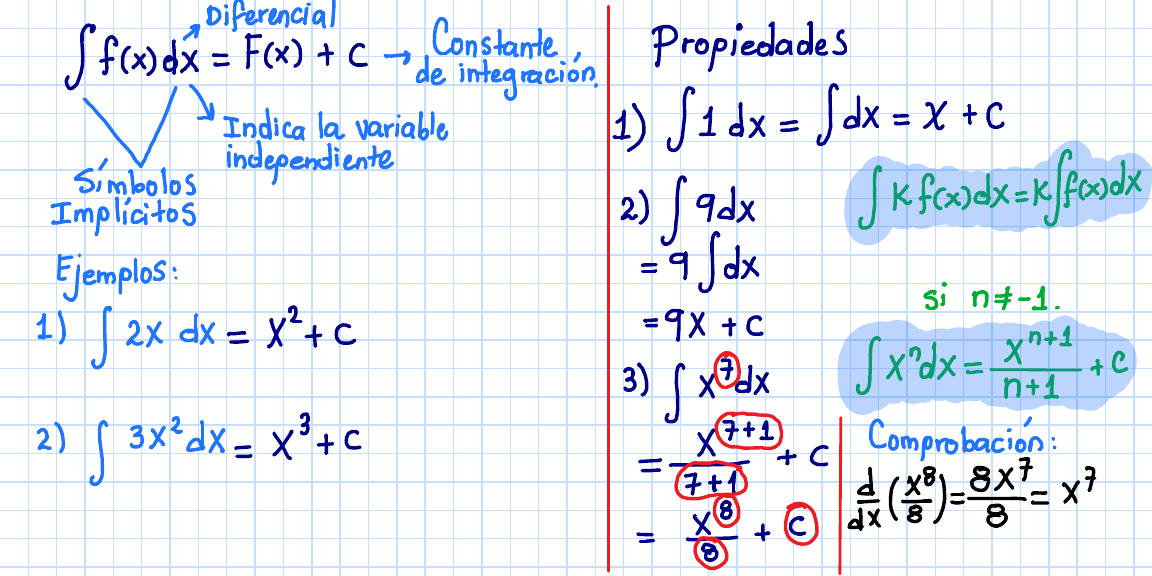 Diferencial
∫ f(x) dx = F(x) + C → Constante de integración.
Indica la variable
independiente
Símbolos
Implícitos
Ejemplos:
1) ∫ 2x dx = x² + C
2) ∫ 3x² dx = x³ + C
Propiedades
1) ∫ 1 dx = ∫ dx = x + C
2) ∫ 9dx
= 9 ∫ dx
= 9x + C
∫ K f(x) dx = K ∫ f(x) dx
si n ≠ -1.
∫ xⁿ dx = xⁿ⁺¹/n+1 + C
3) ∫ x⁷ dx
= x⁷⁺¹/7+1 + C
= x⁸/8 + C
Comprobación:
d/dx (x⁸/8) = 8x⁷/8 = x⁷